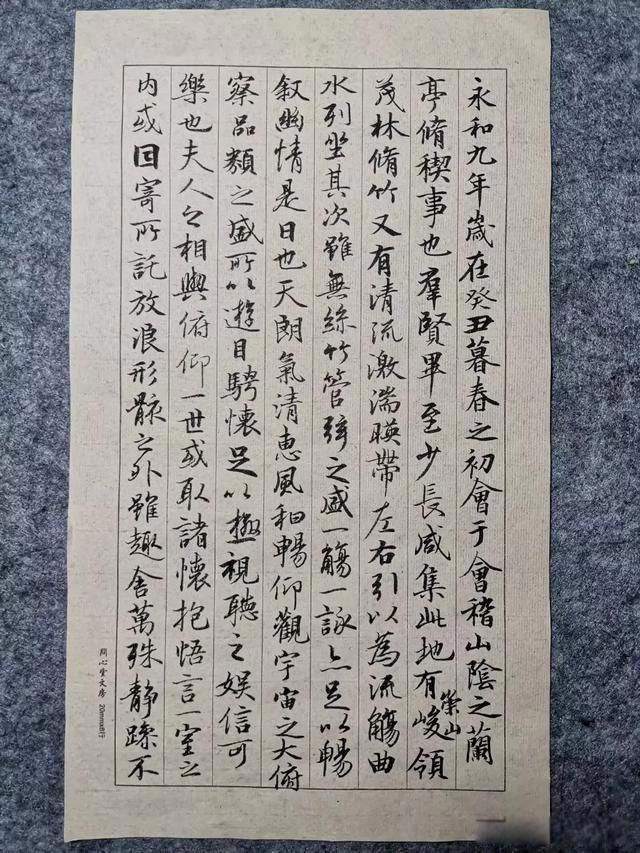 永和九年歲在癸丑暮春之初會于會稽山陰之蘭
亭脩稧事也羣賢畢至少長咸集此地有崇山峻領
茂林脩竹又有清流激湍暎帶左右引以為流觴曲
水列坐其次雖無絲竹管弦之盛一觴一詠亦足以暢
叙幽情是日也天朗氣清恵風和暢仰觀宇宙之大俯
察品類之盛所以遊目騁懷足以極視聽之娱信可
樂也夫人之相與俯仰一世或取諸懷抱悟言一室之
内或因寄所託放浪形骸之外雖趣舍萬殊静躁不
問心堂文房 20mmx8行